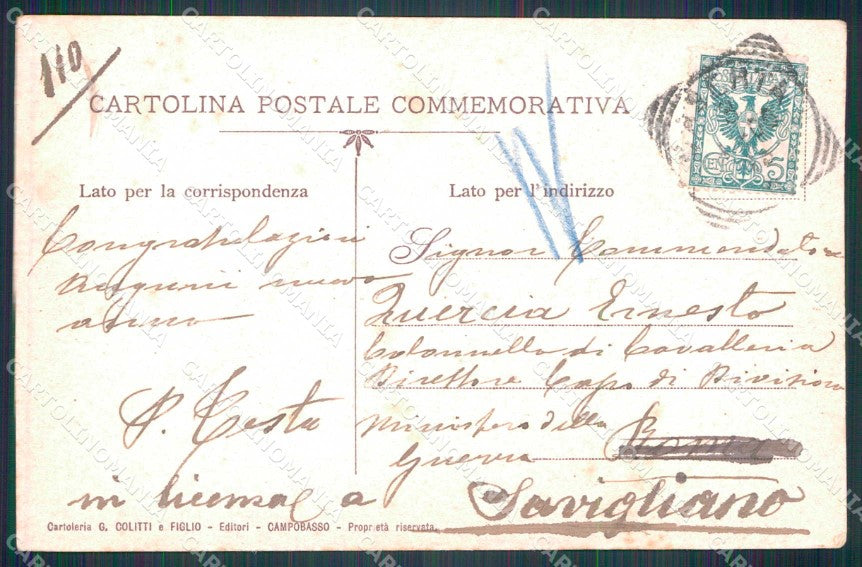 110
CARTOLINA POSTALE COMMEMORATIVA
Lato per la corrispondenza
Lato per l'indirizzo
Congratulazioni
Auguri nuovo
anno
P. Testa
Signor Commendatore
Quercia Ernesto
Colonnello di Cavalleria
Direttore Capo di Divisione
Ministero della
Guerra
Roma
in licenza a Savigliano
Cartoleria G. COLITTI e FIGLIO - Editori - CAMPOBASSO - Proprietà riservata.
CARTOLINOMANIA